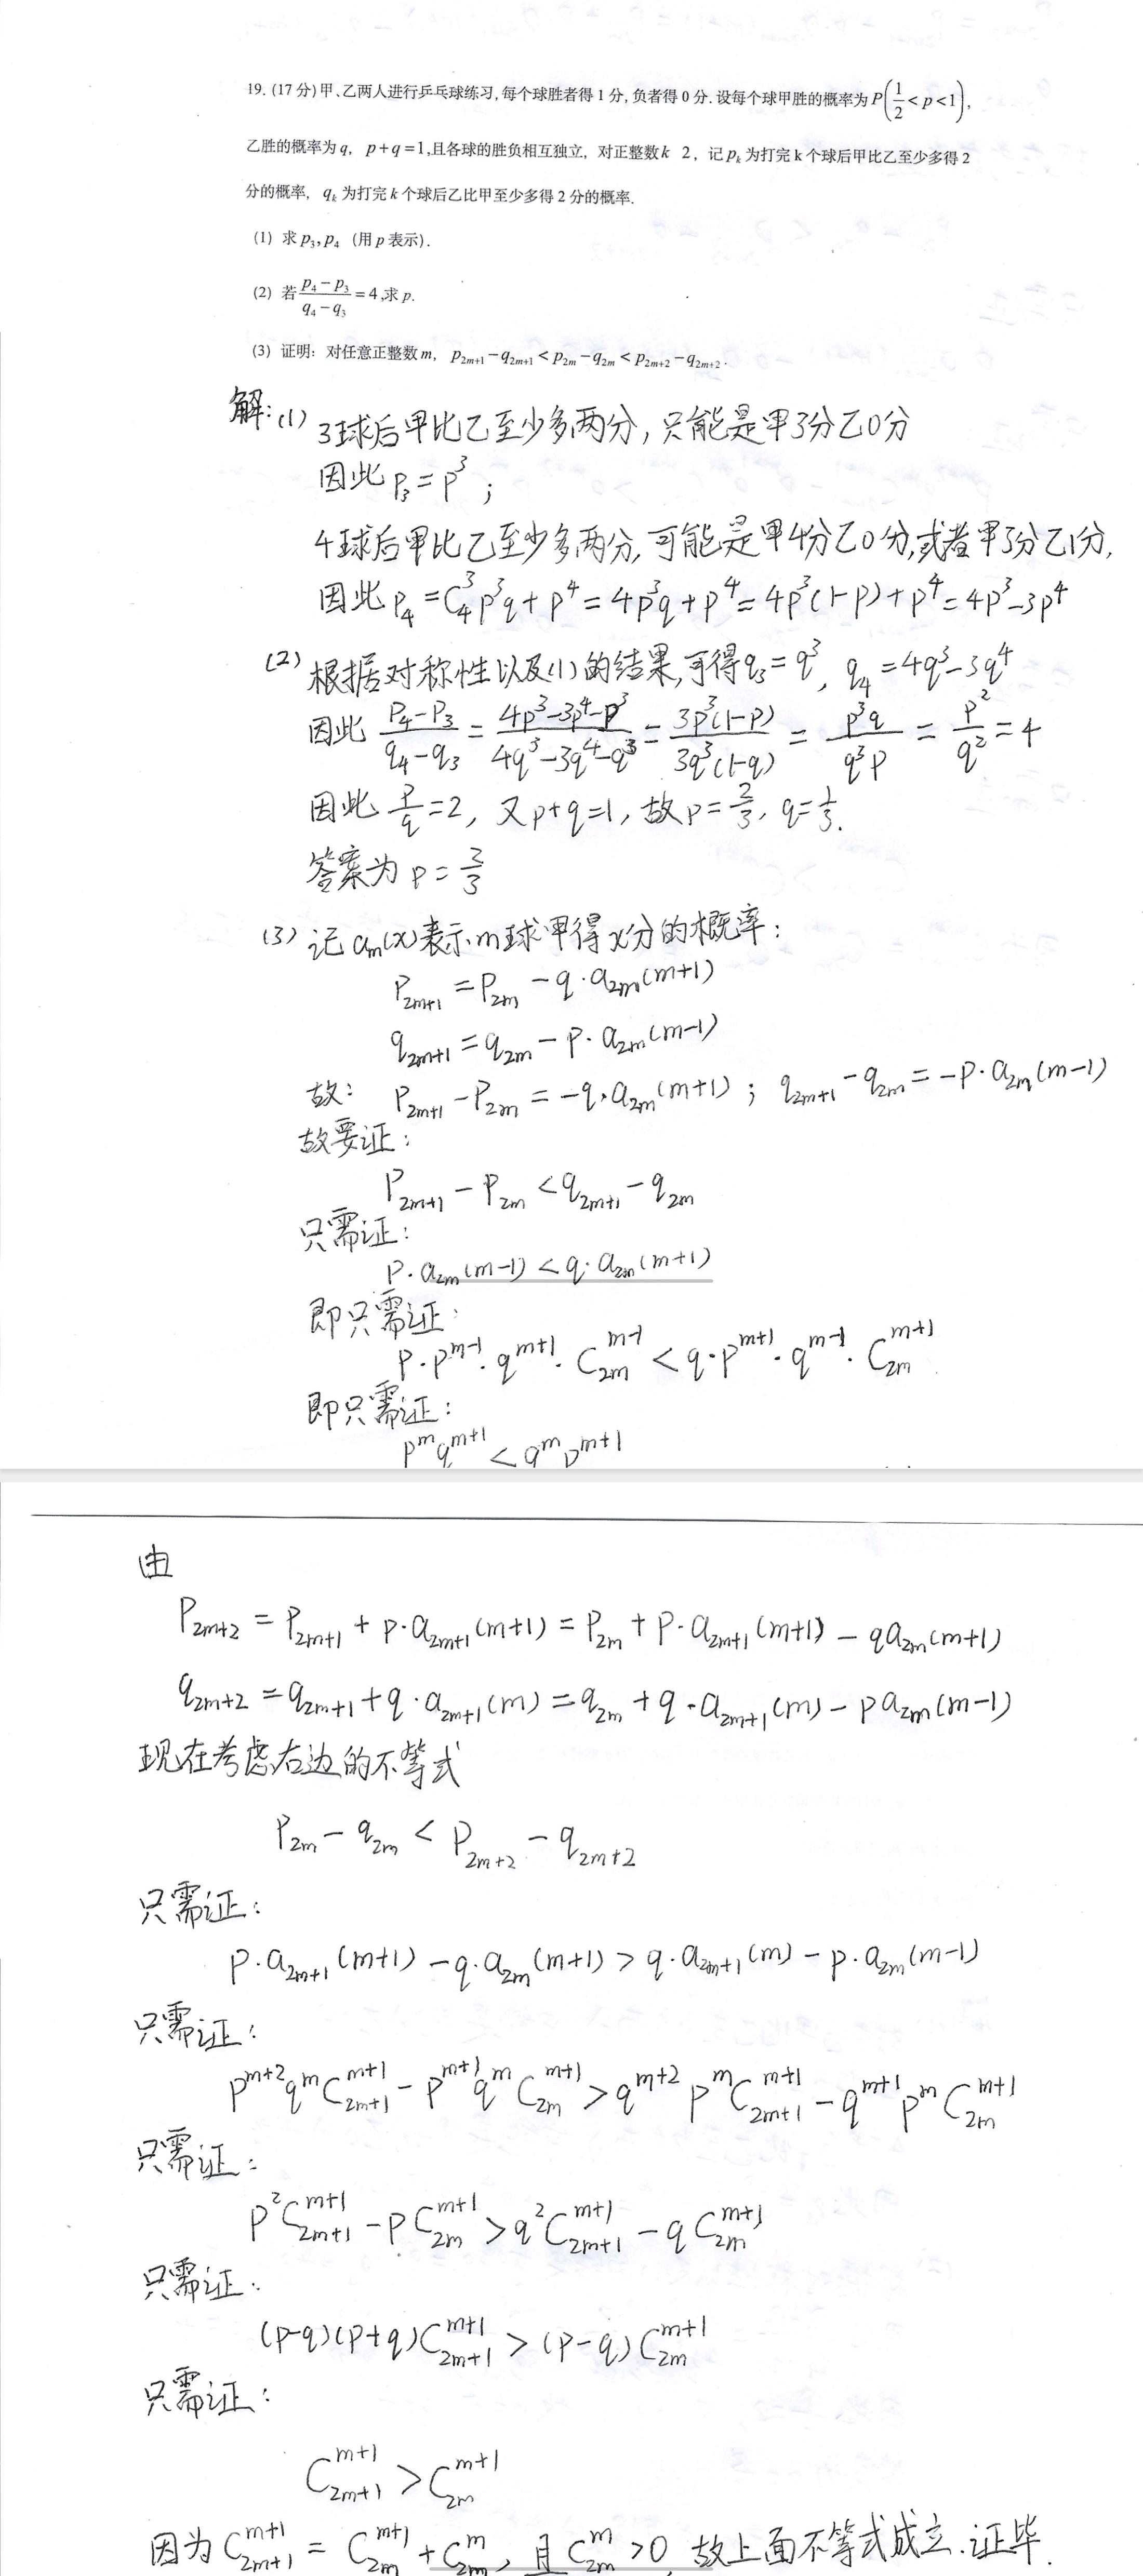 19. (17分)甲、乙两人进行乒乓球练习,每个球胜者得1分,负者得0分.设每个球甲胜的概率为P(1/2<p<1),
乙胜的概率为q, p+q=1,且各球的胜负相互独立, 对正整数k 2, 记p_k为打完k个球后甲比乙至少多得2
分的概率, q_k为打完k个球后乙比甲至少多得2分的概率.
(1) 求p_3,p_4 (用p表示).
(2) 若(p_4-p_3)/(q_4-q_3)=4,求p.
(3) 证明: 对任意正整数m, p_{2m+1}-q_{2m+1}<p_{2m}-q_{2m}<p_{2m+2}-q_{2m+2}.
解:(1) 3球后甲比乙至少多两分,只能是甲3分乙0分
因此 P_3=p^3;
4球后甲比乙至少多两分,可能是甲4分乙0分,或者甲3分乙1分,
因此 P_4=C_4^3p^3q+p^4=4p^3q+p^4=4p^3(1-p)+p^4=4p^3-3p^4
(2) 根据对称性以及(1)的结果,可得q_3=q^3, q_4=4q^3-3q^4
因此 (P_4-P_3)/(q_4-q_3)=(4p^3-3p^4-p^3)/(4q^3-3q^4-q^3)=3p^3(1-p)/3q^3(1-q)=p^3q/q^3p=p^2/q^2=4
因此 p/q=2, 又p+q=1, 故p=2/3, q=1/3.
答案为 p=2/3
(3) 记a_m(x)表示m球甲得x分的概率:
P_{2m+1}=P_{2m}-q·a_{2m}(m+1)
q_{2m+1}=q_{2m}-p·a_{2m}(m-1)
故: P_{2m+1}-P_{2m}=-q·a_{2m}(m+1); q_{2m+1}-q_{2m}=-p·a_{2m}(m-1)
故要证:
P_{2m+1}-P_{2m}<q_{2m+1}-q_{2m}
只需证:
p·a_{2m}(m-1)<q·a_{2m}(m+1)
即只需证:
p·p^{m-1}·q^{m+1}·C_{2m}^{m-1}<q·p^{m+1}·q^{m-1}·C_{2m}^{m+1}
即只需证:
p^mq^{m+1}<q^mp^{m+1}
由
P_{2m+2}=P_{2m+1}+p·a_{2m+1}(m+1)=P_{2m}+p·a_{2m+1}(m+1)-qa_{2m}(m+1)
q_{2m+2}=q_{2m+1}+q·a_{2m+1}(m)=q_{2m}+q·a_{2m+1}(m)-pa_{2m}(m-1)
现在考虑右边的不等式
P_{2m}-q_{2m}<P_{2m+2}-q_{2m+2}
只需证:
p·a_{2m+1}(m+1)-q·a_{2m}(m+1)>q·a_{2m+1}(m)-p·a_{2m}(m-1)
只需证:
p^{m+2}q^mC_{2m+1}^{m+1}-p^{m+1}q^mC_{2m}^{m+1}>q^{m+2}p^mC_{2m+1}^{m+1}-q^{m+1}p^mC_{2m}^{m+1}
只需证:
p^2C_{2m+1}^{m+1}-pC_{2m}^{m+1}>q^2C_{2m+1}^{m+1}-qC_{2m}^{m+1}
只需证:
(p-q)(p+q)C_{2m+1}^{m+1}>(p-q)C_{2m}^{m+1}
只需证:
C_{2m+1}^{m+1}>C_{2m}^{m+1}
因为C_{2m+1}^{m+1}=C_{2m}^{m+1}+C_{2m}^m, 且C_{2m}^m>0, 故上面不等式成立.证毕.